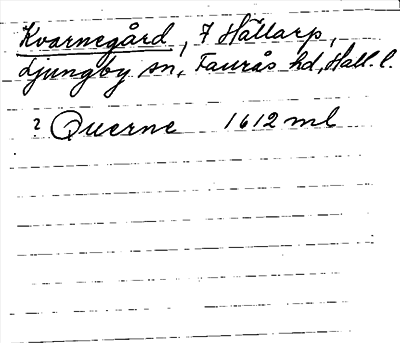 Kvarnegård, 7 Hällarp,
Ljungby sn, Faurås hd, Hall. l.
? Querne 1612 ml